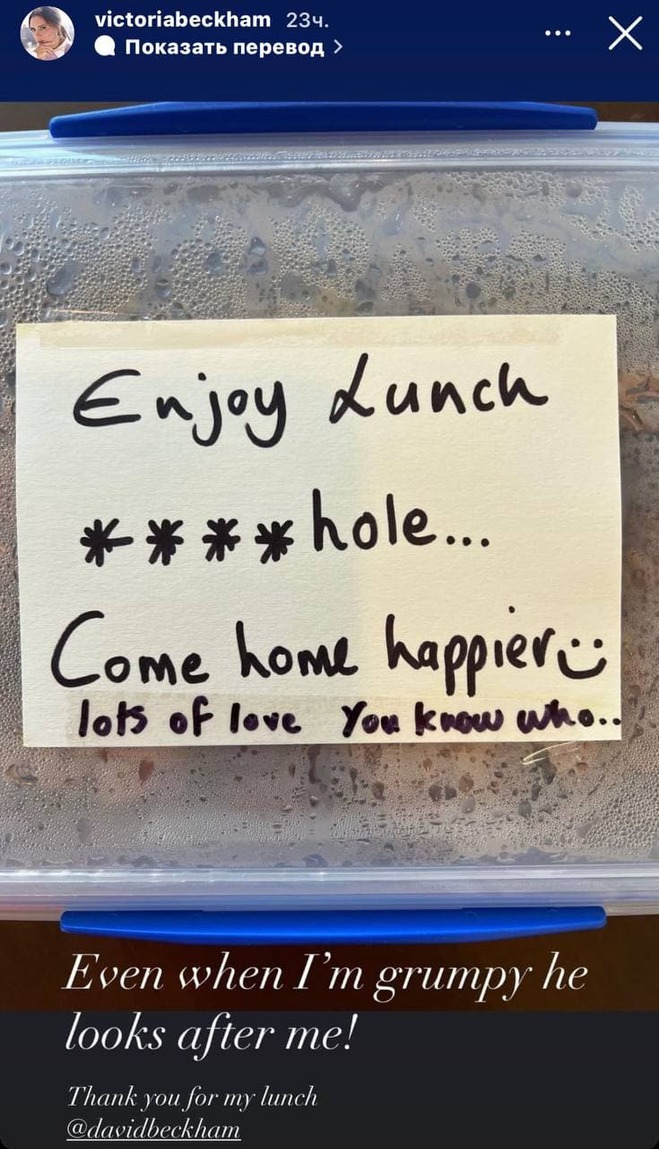 victoriabeckham 23ч.
Показать перевод >
Enjoy Lunch
****hole...
Come home happier :)
lots of love You know who...
Even when I'm grumpy he
looks after me!
Thank you for my lunch
@davidbeckham